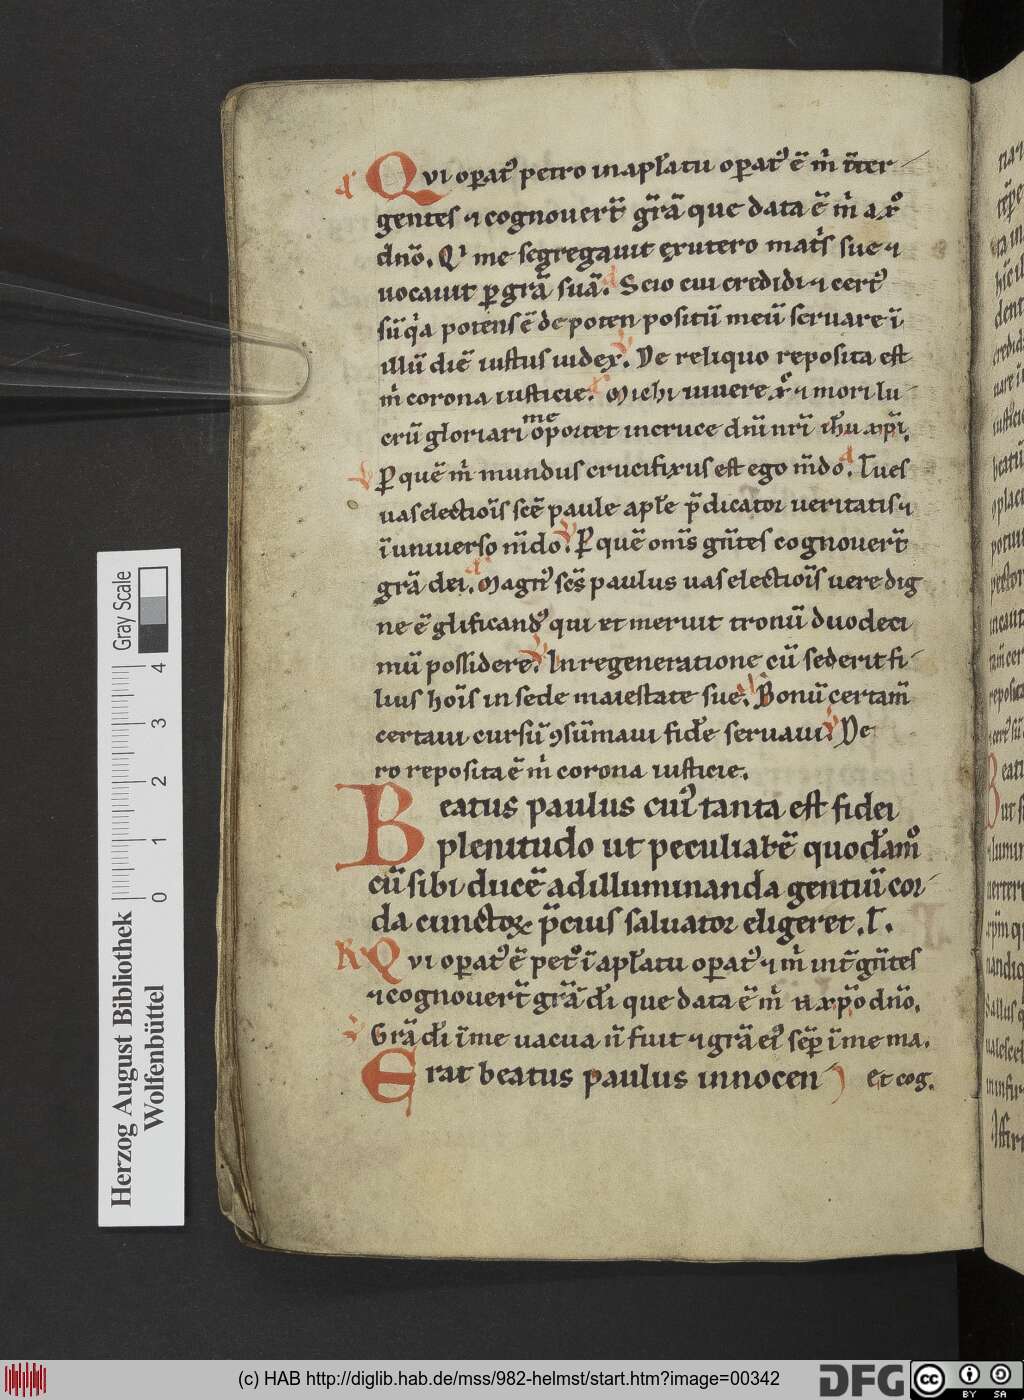 Qvi opat᷒ petro in apl̄atu opat᷒ ē m̄ īter
gentes ⁊ cognouert̄ gr̄ā que data ē m̄ a xp̄o
dn̄o. Qͥ me segregauit ex utero mat̄s sue ⁊
uocauit ꝑ grā̄ suā. Scio cui credidi ⁊ cert᷒
sū qͥa potens ē de poten positū meū seruare ī
illū diē iustus iudex. De reliquo reposita est
m̄ corona iusticie. Michi uiuere xp̄c ⁊ mori lu
crū gloriari me oportet in cruce dn̄i nr̄i ih̄u xp̄i.
ꝑ quē m̄ mundus crucifixus est ego m̄do. Tu es
uas electiōis scē paule apl̄e p̄dicator ueritatis ⁊
ī uniuerso m̄do. ꝑ quē om̄is gn̄tes cognouert̄
grā̄ dei. Magn᷒ scs̄ paulus uas electiōis uere dig
ne ē glīficand᷒ qui et meruit tronū duodeci
mū possidere. In regeneratione cū sederit fi
lius hoīs in sede maiestate sue. Bonū certam̄
certaui cursū ꝯsūmaui fidē seruaui. De
ro reposita ē m̄ corona iusticie.
Beatus paulus cui᷒ tanta est fidei
plenitudo ut peculiarē quodam̄o
cū sibi ducē ad illuminanda gentiū cor
da cunctoꝝ p̄cius saluator eligeret. T.
R Qvi opat᷒ ē pet̊ ī apl̄atu opat᷒ ⁊ m̄ int̄ gn̄tes
⁊ cognouert̄ grā̄ dī que data ē m̄ a xp̄o dn̄o.
Grā̄ dī ī me uacua n̄ fuit ⁊ grā̄ ei᷒ sēp ī me ma.
Erat beatus paulus innocen et cog.
Herzog August Bibliothek
Wolfenbüttel
Gray Scale
0 1 2 3 4
(c) HAB http://diglib.hab.de/mss/982-helmst/start.htm?image=00342
DFG
cc BY SA